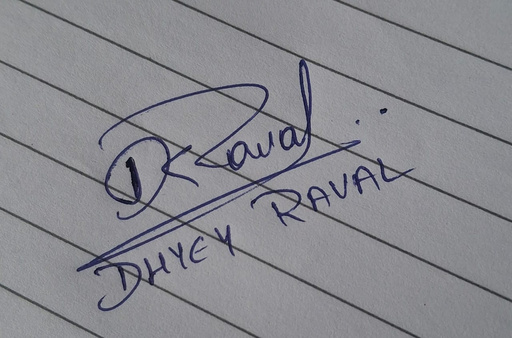 D Raval..
DHYEY RAVAL